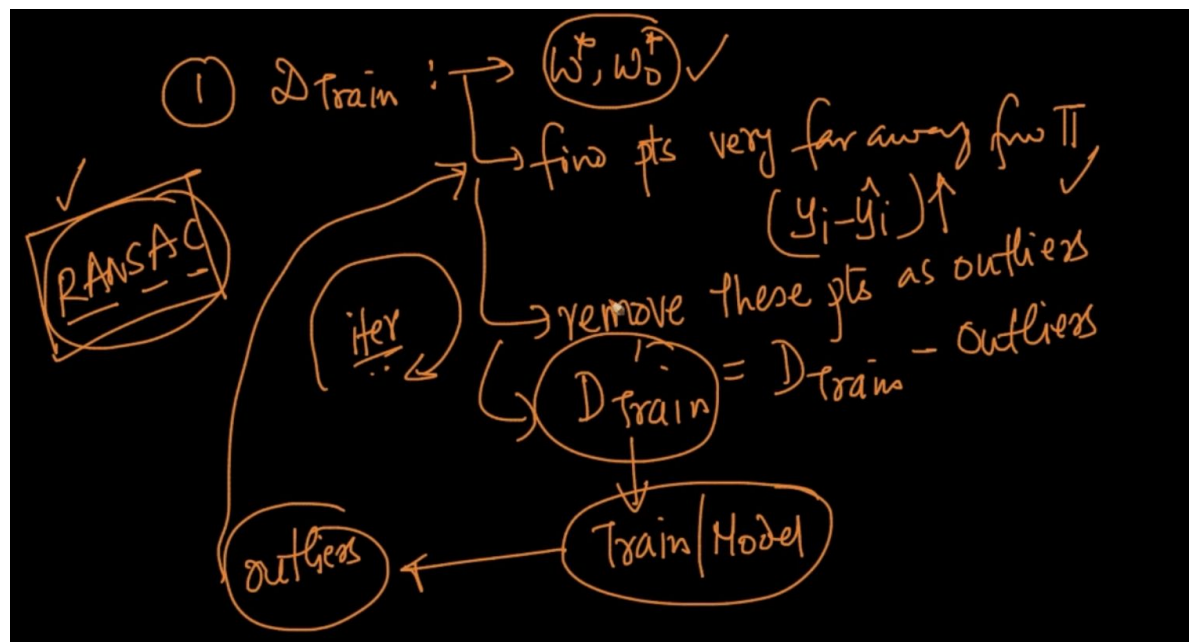 ① D Train : → w*, w₀* ✓
→ find pts very far away from π
(yᵢ - ŷᵢ) ↑ ✓
RANSAC ✓
iter
→ remove these pts as outliers
D'Train = DTrain - outliers
Train/Model
outliers